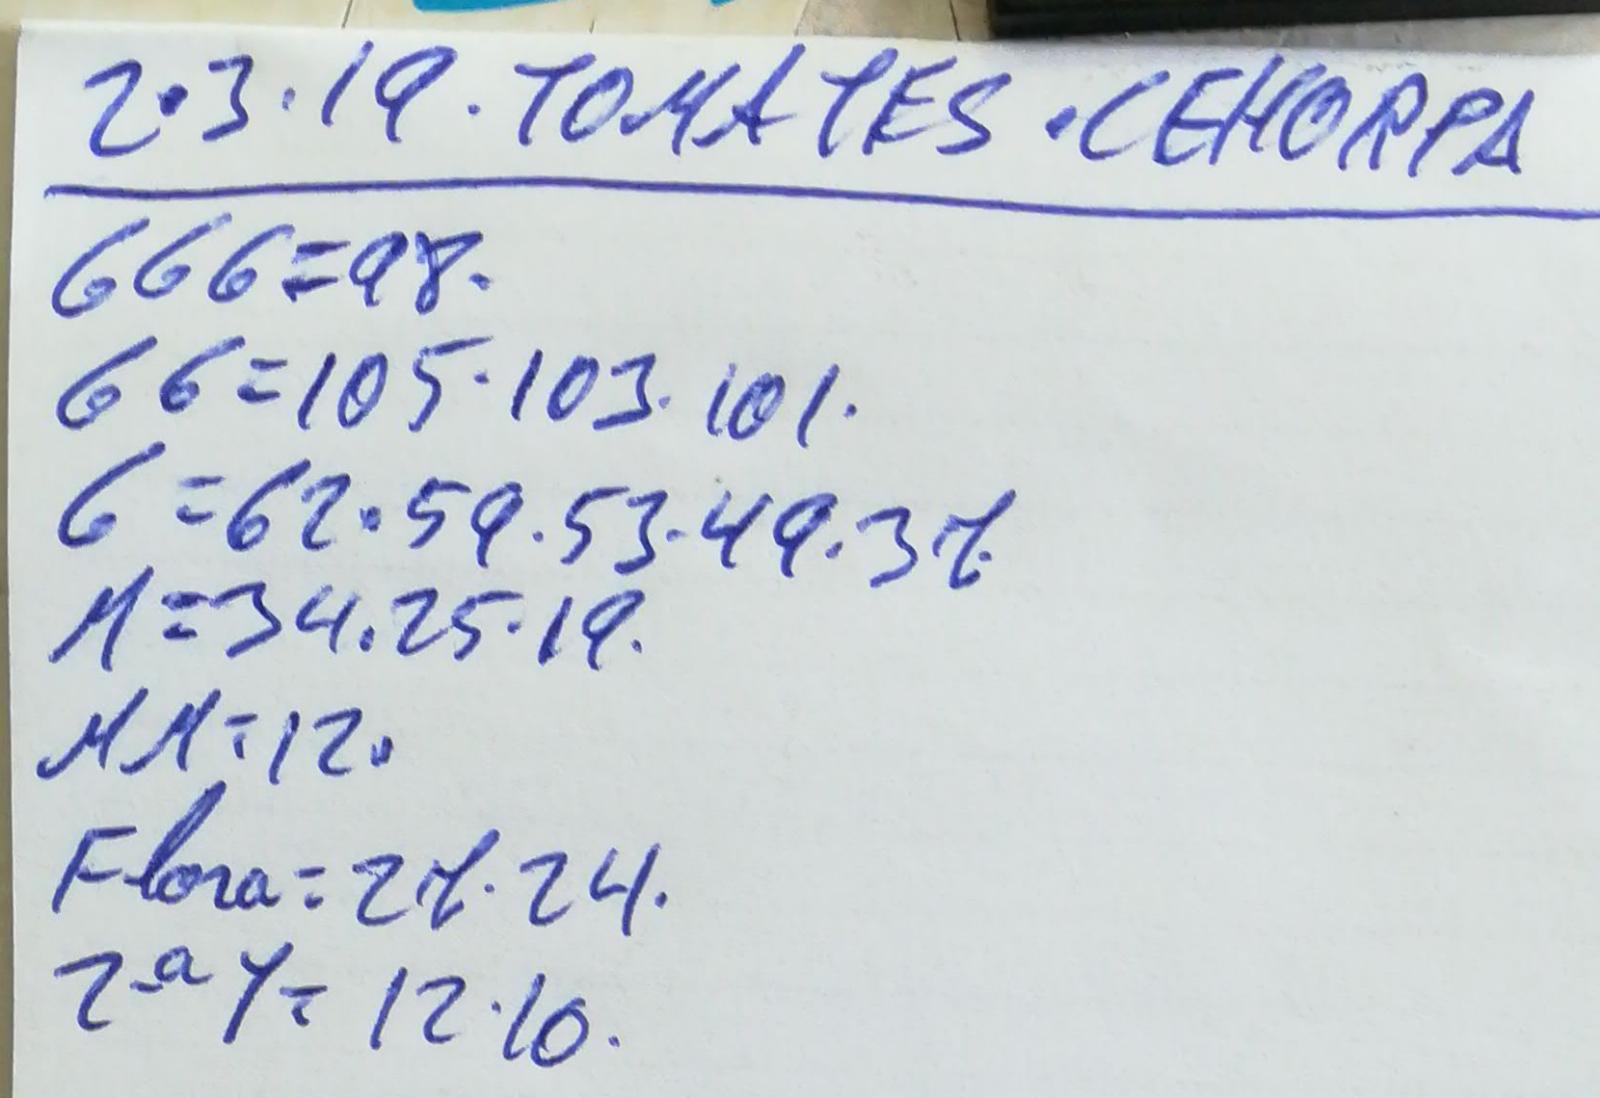 2.3.19.TOMATES.CEHORPA
GGG=98.
GG=105.103.101.
G=62.59.53.49.37.
M=34.25.19.
MM=12.
Flora=27.24.
2ª Y=12.10.